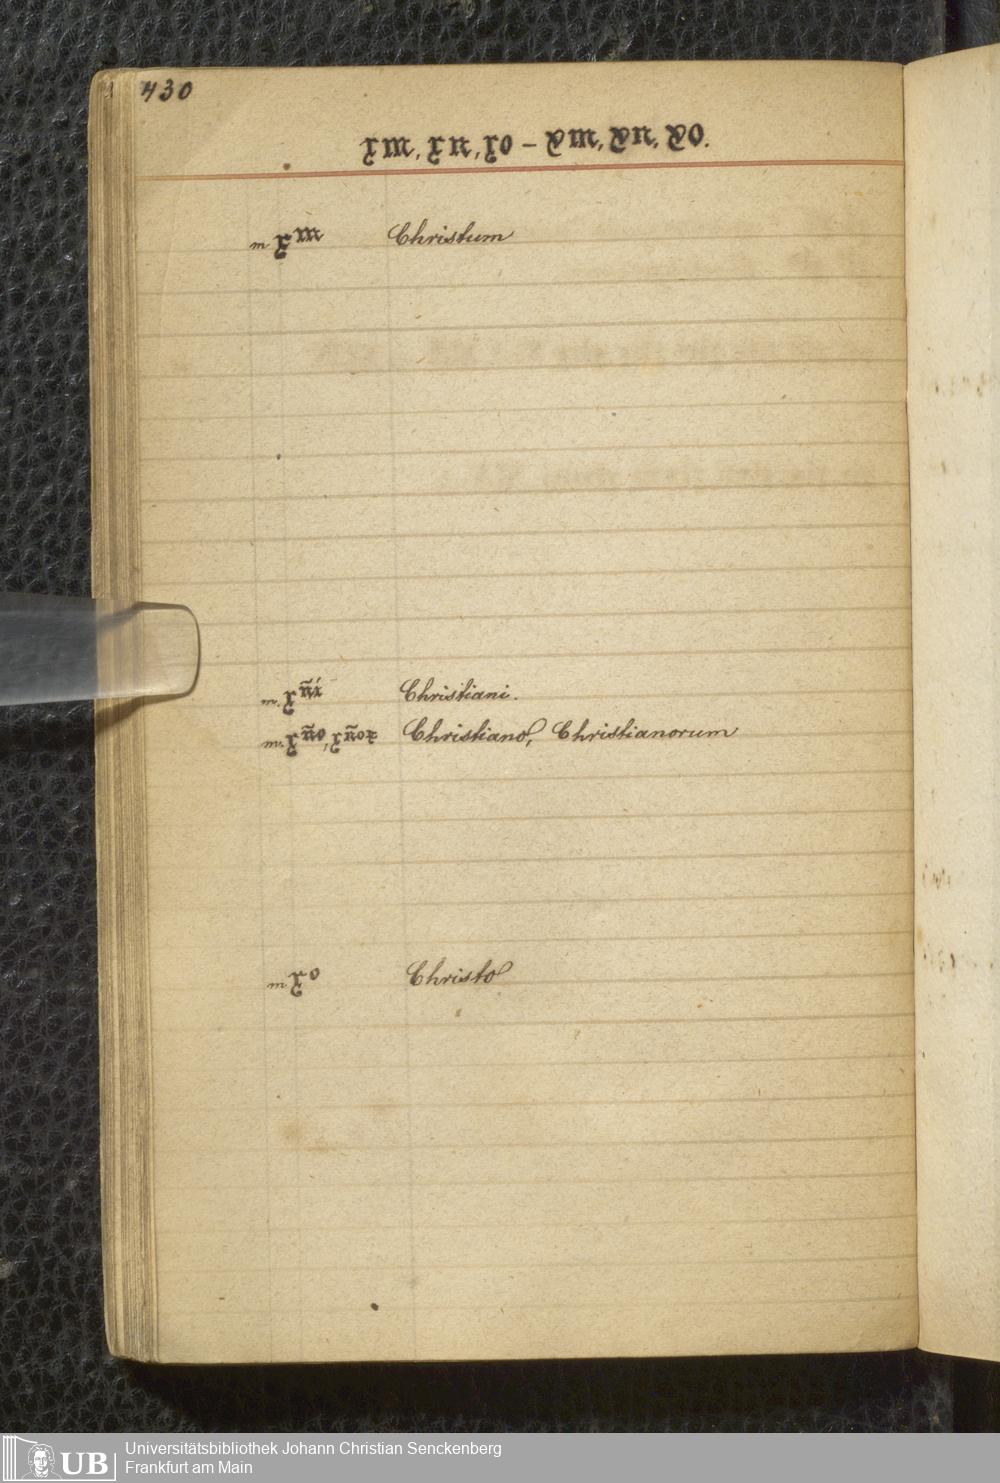 430
xm, xn, xo – Xm, Xn, Xo.
m xᵐ Christum
m. xn̄i Christiani.
m. xn̄o, xn̄oꝝ Christiano, Christianorum
m xᵒ Christo
Universitätsbibliothek Johann Christian Senckenberg
Frankfurt am Main
UB